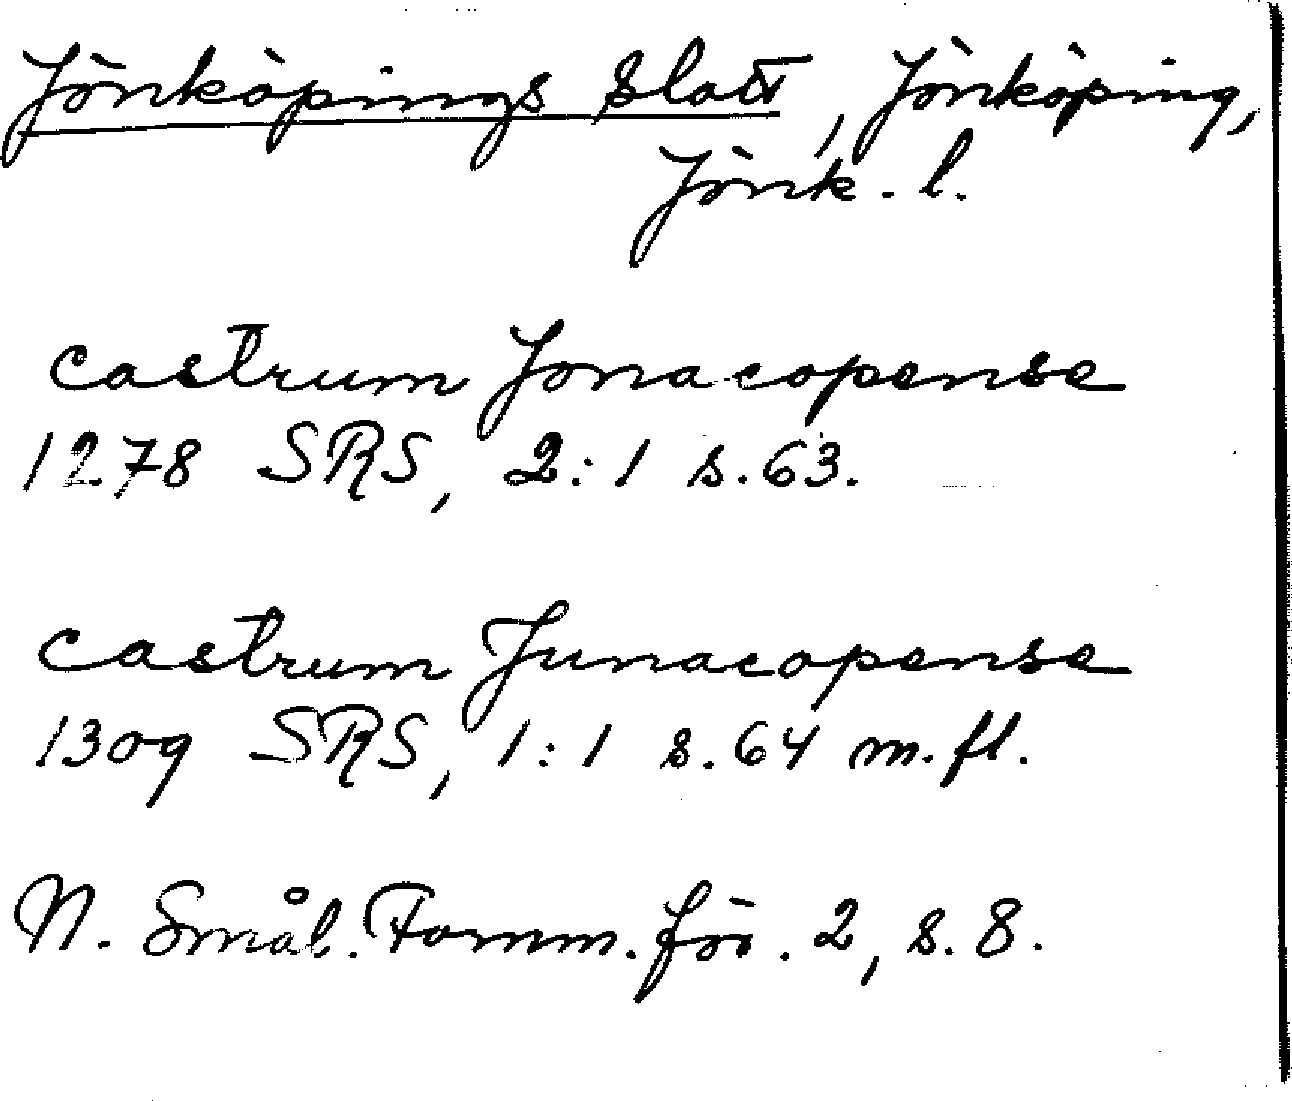 Jönköpings slott, Jönköping,
Jönk. l.
castrum Jonacopense
1278 SRS, 2:1 s. 63.
castrum Junacopense
1309 SRS, 1:1 s. 64 m. fl.
N. Smål. Fornm. för. 2, s. 8.